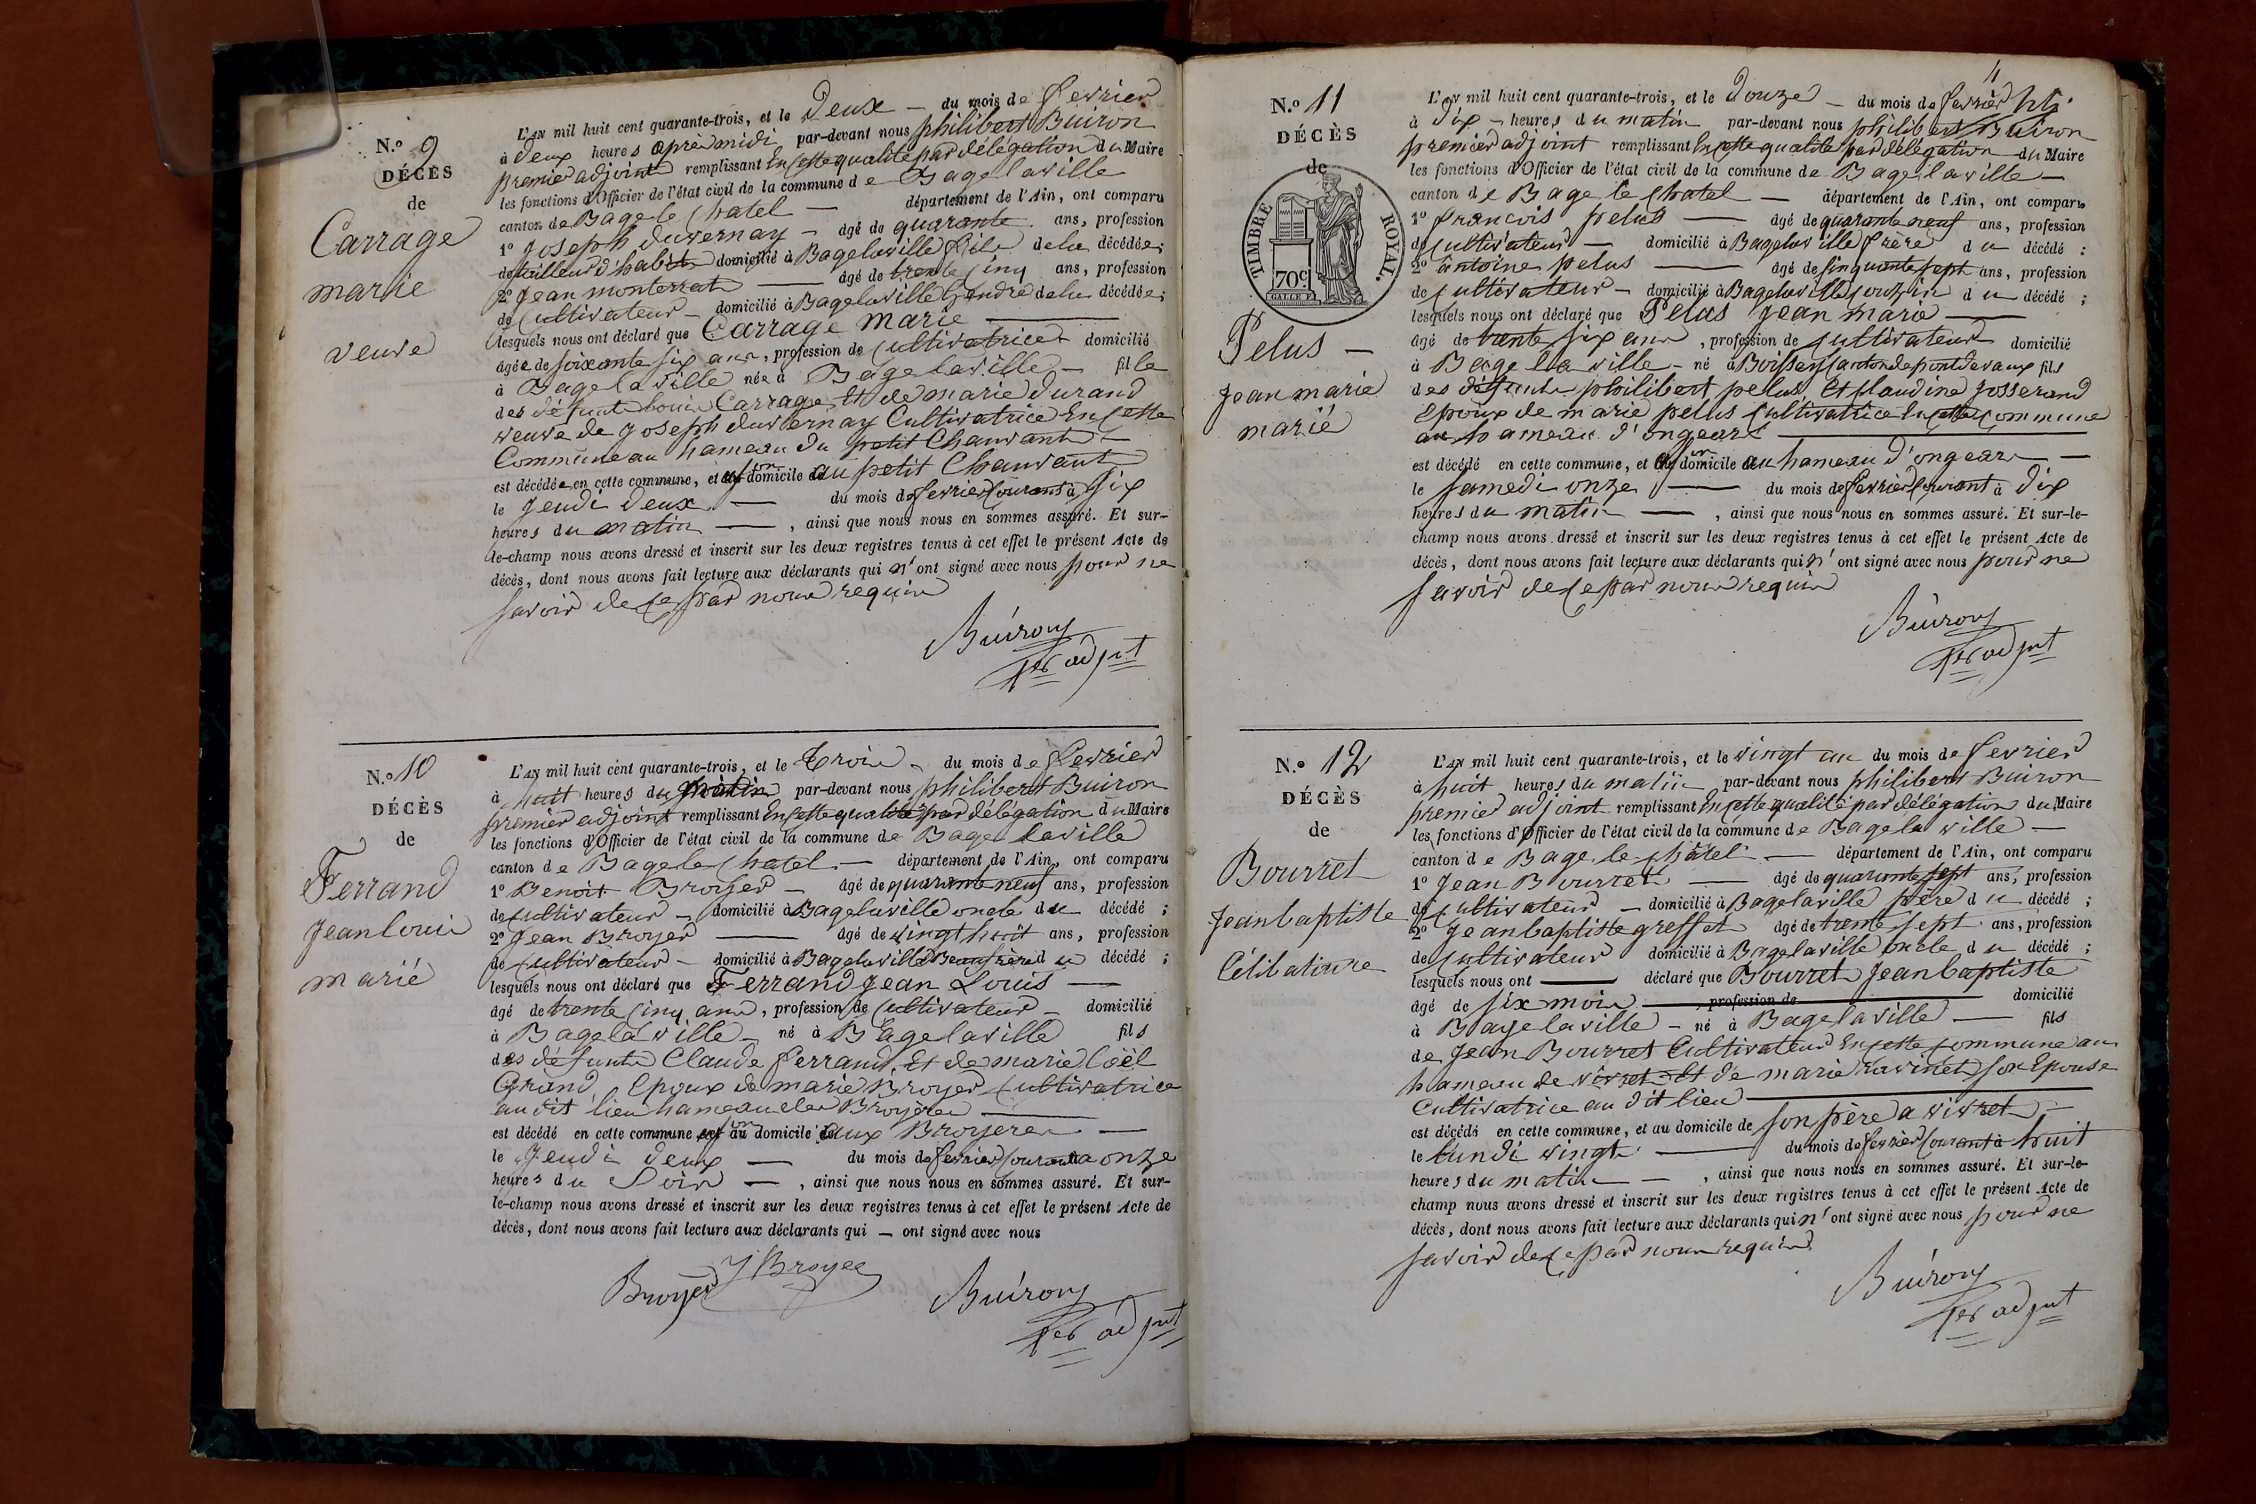 N.o 9
DÉCÈS
de
Carrage
marie
veuve
L'AN mil huit cent quarante-trois, et le Deux — du mois de fevrier
à deux heures après midi par-devant nous philibert Buiron
premier adjoint remplissant en cette qualité par délégation du Maire
les fonctions d'Officier de l'état civil de la commune de Bagé la ville
canton de Bagé le Chatel — département de l'Ain, ont comparu
1o Joseph duvernay — âgé de quarante ans, profession
de tailleur d'habits domicilié à Bagé la ville fils de la décédée;
2o Jean monterrat — âgé de trente cinq ans, profession
de Cultivateur — domicilié à Bagé la ville Gendre de la décédée;
lesquels nous ont déclaré que Carrage Marie —
âgée de soixante six ans, profession de Cultivatrice domicilié
à Bagé la ville née à Bagé la ville — fille
des défunts louis Carrage Et de marie durand
veuve de Joseph duvernay Cultivatrice En cette
Commune au hameau du petit Chauvant —
est décédée en cette commune, et en son domicile au petit Chauvant
le Jeudi Deux — du mois de fevrier courant à six
heures du matin —, ainsi que nous nous en sommes assuré. Et sur-
le-champ nous avons dressé et inscrit sur les deux registres tenus à cet effet le présent Acte de
décès, dont nous avons fait lecture aux déclarants qui n'ont signé avec nous pour ne
savoir de ce par nous requis
Buiron
1er adjnt
N.o 10
DÉCÈS
de
Ferrand
Jean louis
marié
L'AN mil huit cent quarante-trois, et le trois — du mois de fevrier
à huit heures du matin par-devant nous philibert Buiron
premier adjoint remplissant En cette qualité par délégation du Maire
les fonctions d'Officier de l'état civil de la commune de Bagé la ville
canton de Bagé le Chatel — département de l'Ain, ont comparu
1o Benoit Broyer — âgé de quarante neuf ans, profession
de cultivateur — domicilié à Bagé la ville oncle du décédé;
2o Jean Broyer — âgé de vingt huit ans, profession
de cultivateur — domicilié à Bagé la ville Beau frère du décédé;
lesquels nous ont déclaré que Ferrand Jean Louis —
âgé de trente cinq ans, profession de Cultivateur — domicilié
à Bagé la ville — né à Bagé la ville fils
des défunts Claude ferrand, Et de marie loël
Grand, Epoux de marie Broyer Cultivatrice
au dit lieu hameau des Broyères —
est décédé en cette commune et en son domicile aux Broyeres —
le Jeudi deux — du mois de fevrier courant à onze
heures du Soir —, ainsi que nous nous en sommes assuré. Et sur-
le-champ nous avons dressé et inscrit sur les deux registres tenus à cet effet le présent Acte de
décès, dont nous avons fait lecture aux déclarants qui — ont signé avec nous
Broyer J Broyer Buiron
1er adjnt
11
N.o 11
DÉCÈS
de
TIMBRE ROYAL.
70c
Pelus —
Jean marie
marié
L'AN mil huit cent quarante-trois, et le Douze — du mois de fevrier
à Dix — heures du matin par-devant nous philibert Buiron
premier adjoint remplissant En cette qualité par délégation du Maire
les fonctions d'Officier de l'état civil de la commune de Bagé la ville —
canton de Bagé le Chatel — département de l'Ain, ont comparu
1o francois pelus — âgé de quarante neuf ans, profession
de cultivateur — domicilié à Bagé la ville frère du décédé:
2o antoine pelus — âgé de cinquante sept ans, profession
de cultivateur — domicilié à Bagé la ville cousin du décédé;
lesquels nous ont déclaré que Pelus Jean marie —
âgé de trente six ans, profession de cultivateur domicilié
à Bagé la ville — né à Boissey canton de pont de vaux fils
des défunts philibert pelus, Et Claudine Josserand
Epoux de marie pelus Cultivatrice En cette commune
au hameau d'ongears —
est décédé en cette commune, et en son domicile au hameau d'ongears —
le Samedi onze — du mois de fevrier courant à dix
heures du matin —, ainsi que nous nous en sommes assuré. Et sur-le-
champ nous avons dressé et inscrit sur les deux registres tenus à cet effet le présent Acte de
décès, dont nous avons fait lecture aux déclarants qui n'ont signé avec nous pour ne
savoir de ce par nous requis
Buiron
1er adjnt
N.o 12
DÉCÈS
de
Bourret
Jean baptiste
Célibataire
L'AN mil huit cent quarante-trois, et le vingt un du mois de fevrier
à huit heures du matin par-devant nous philibert Buiron
premier adjoint remplissant En cette qualité par délégation du Maire
les fonctions d'Officier de l'état civil de la commune de Bagé la ville —
canton de Bagé le châtel — département de l'Ain, ont comparu
1o Jean Bourret — âgé de quarante sept ans, profession
de cultivateur — domicilié à Bagé la ville père du décédé;
2o Jean baptiste greffet âgé de trente sept ans, profession
de Cultivateur domicilié à Bagé la ville oncle du décédé;
lesquels nous ont — déclaré que Bourret Jean baptiste
âgé de six mois —, profession de — domicilié
à Bagé la ville — né à Bagé la ville — fils
de Jean Bourret Cultivateur En cette commune au
hameau de vivret Et de marie ravinet son Epouse
Cultivatrice au dit lieu —
est décédé en cette commune, et au domicile de son père a vivret —
le lundi vingt — du mois de fevrier courant à huit
heures du matin —, ainsi que nous nous en sommes assuré. Et sur-le-
champ nous avons dressé et inscrit sur les deux registres tenus à cet effet le présent Acte de
décès, dont nous avons fait lecture aux déclarants qui n'ont signé avec nous pour ne
savoir de ce par nous requis
Buiron
1er adjnt